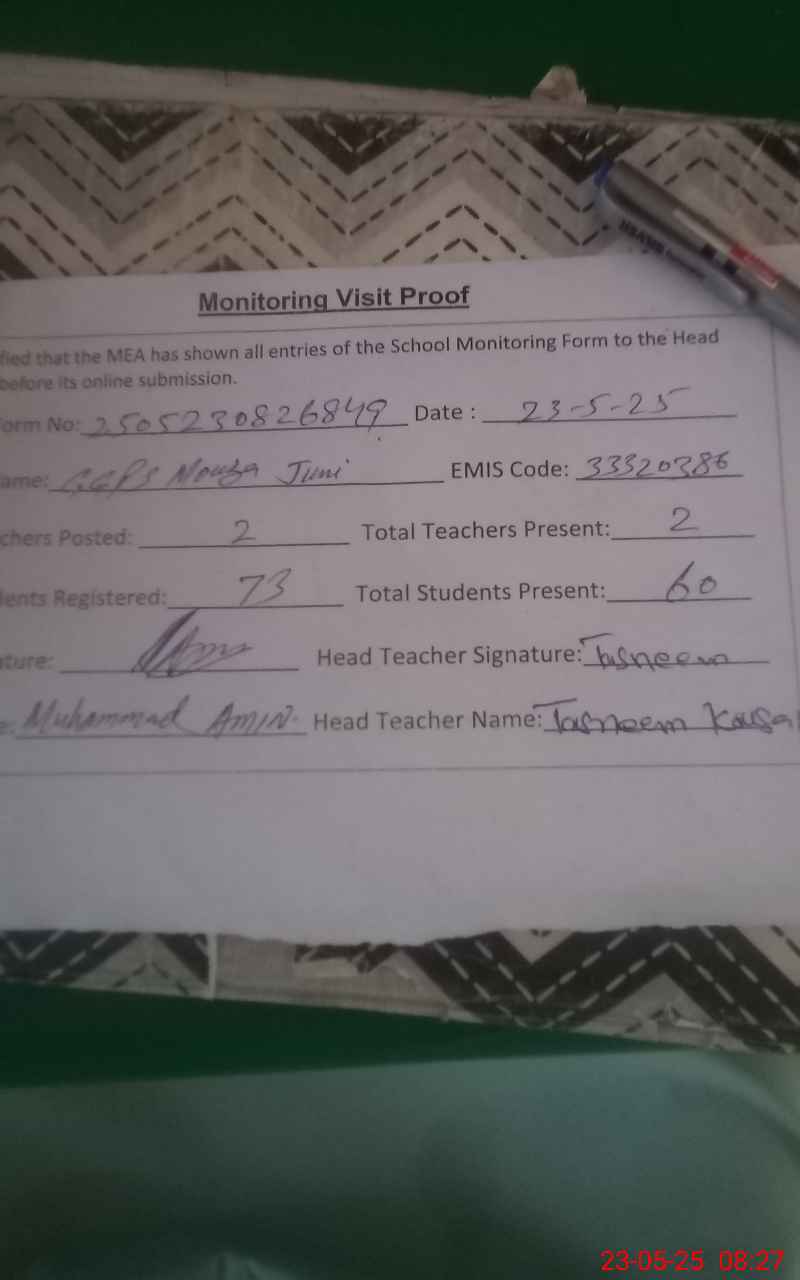 Monitoring Visit Proof
fied that the MEA has shown all entries of the School Monitoring Form to the Head
before its online submission.
orm No: 2505230826849 Date : 23-5-25
ame: GGPS Mouza Juni EMIS Code: 33320386
chers Posted: 2 Total Teachers Present: 2
lents Registered: 73 Total Students Present: 60
ture: Head Teacher Signature: Tasneem
Muhammad AMIN. Head Teacher Name: Tasneem Kousa
23-05-25 08:27